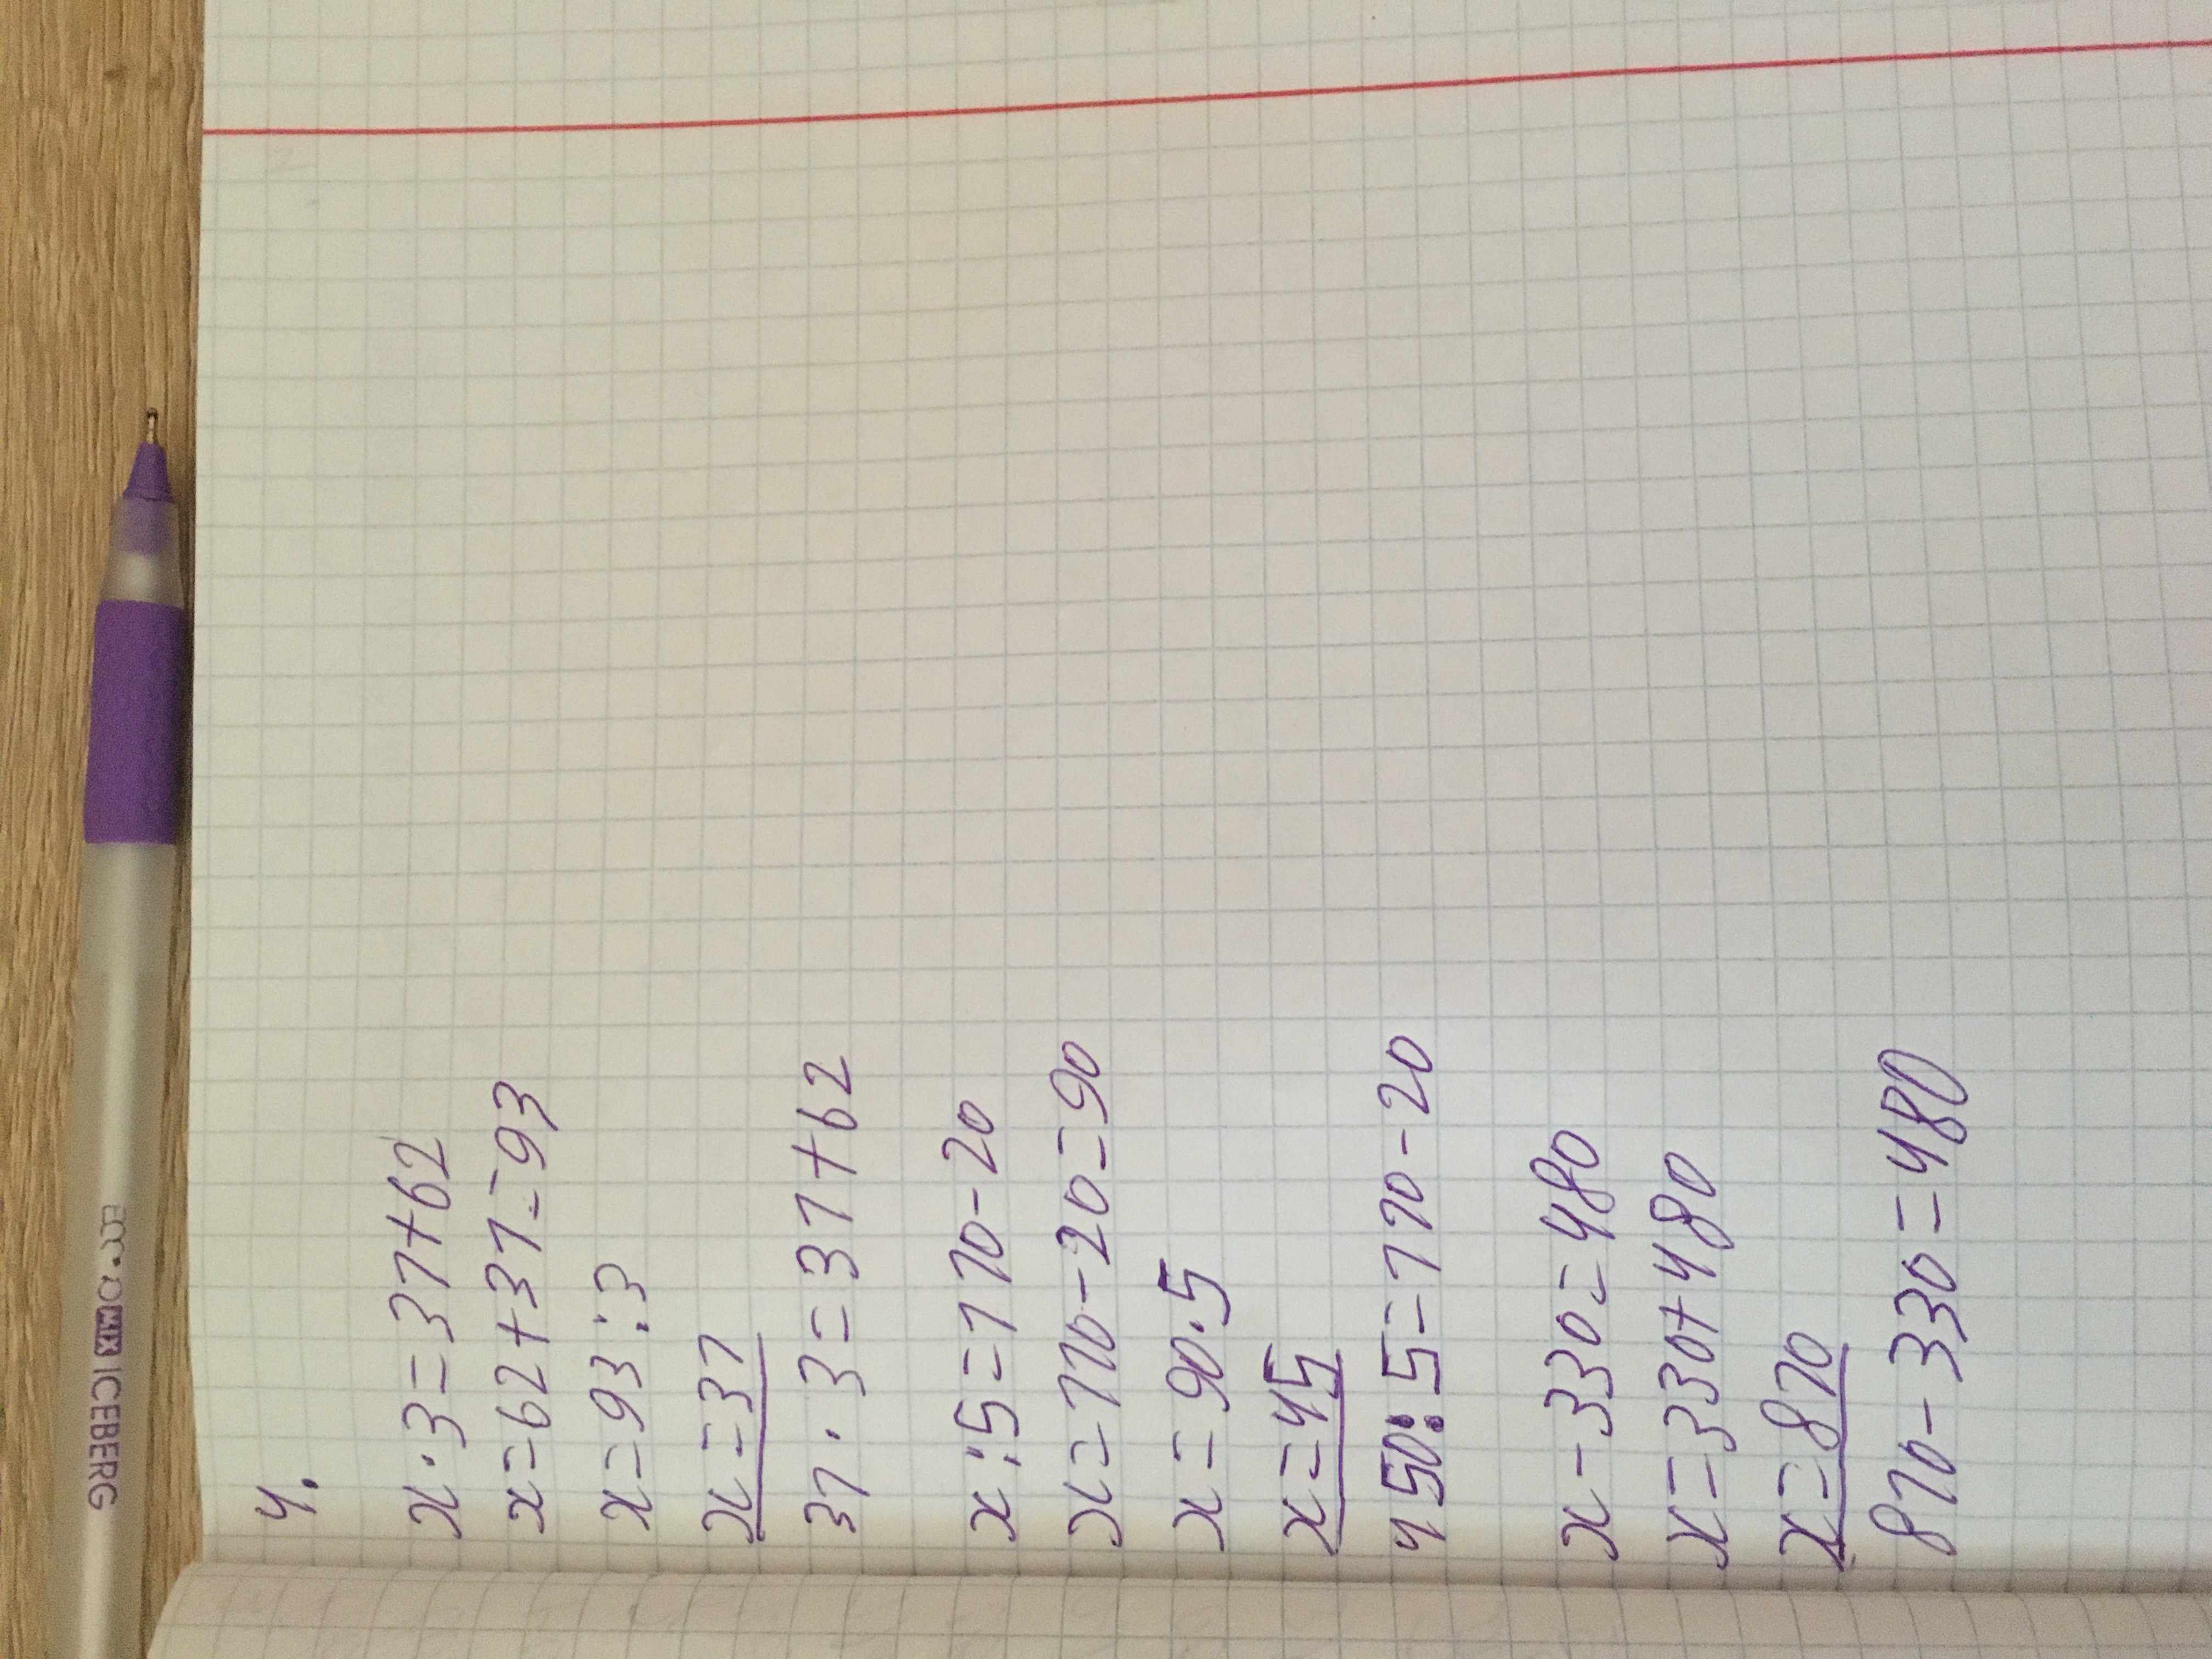 4.
x·3=31+62
x=62+31=93
x=93:3
x=31
31·3=31+62
x:5=110-20
x=110-20=90
x=90.5
x=45
450:5=110-20
x-330=480
x=330+480
x=810
810-330=480
ICEBERG